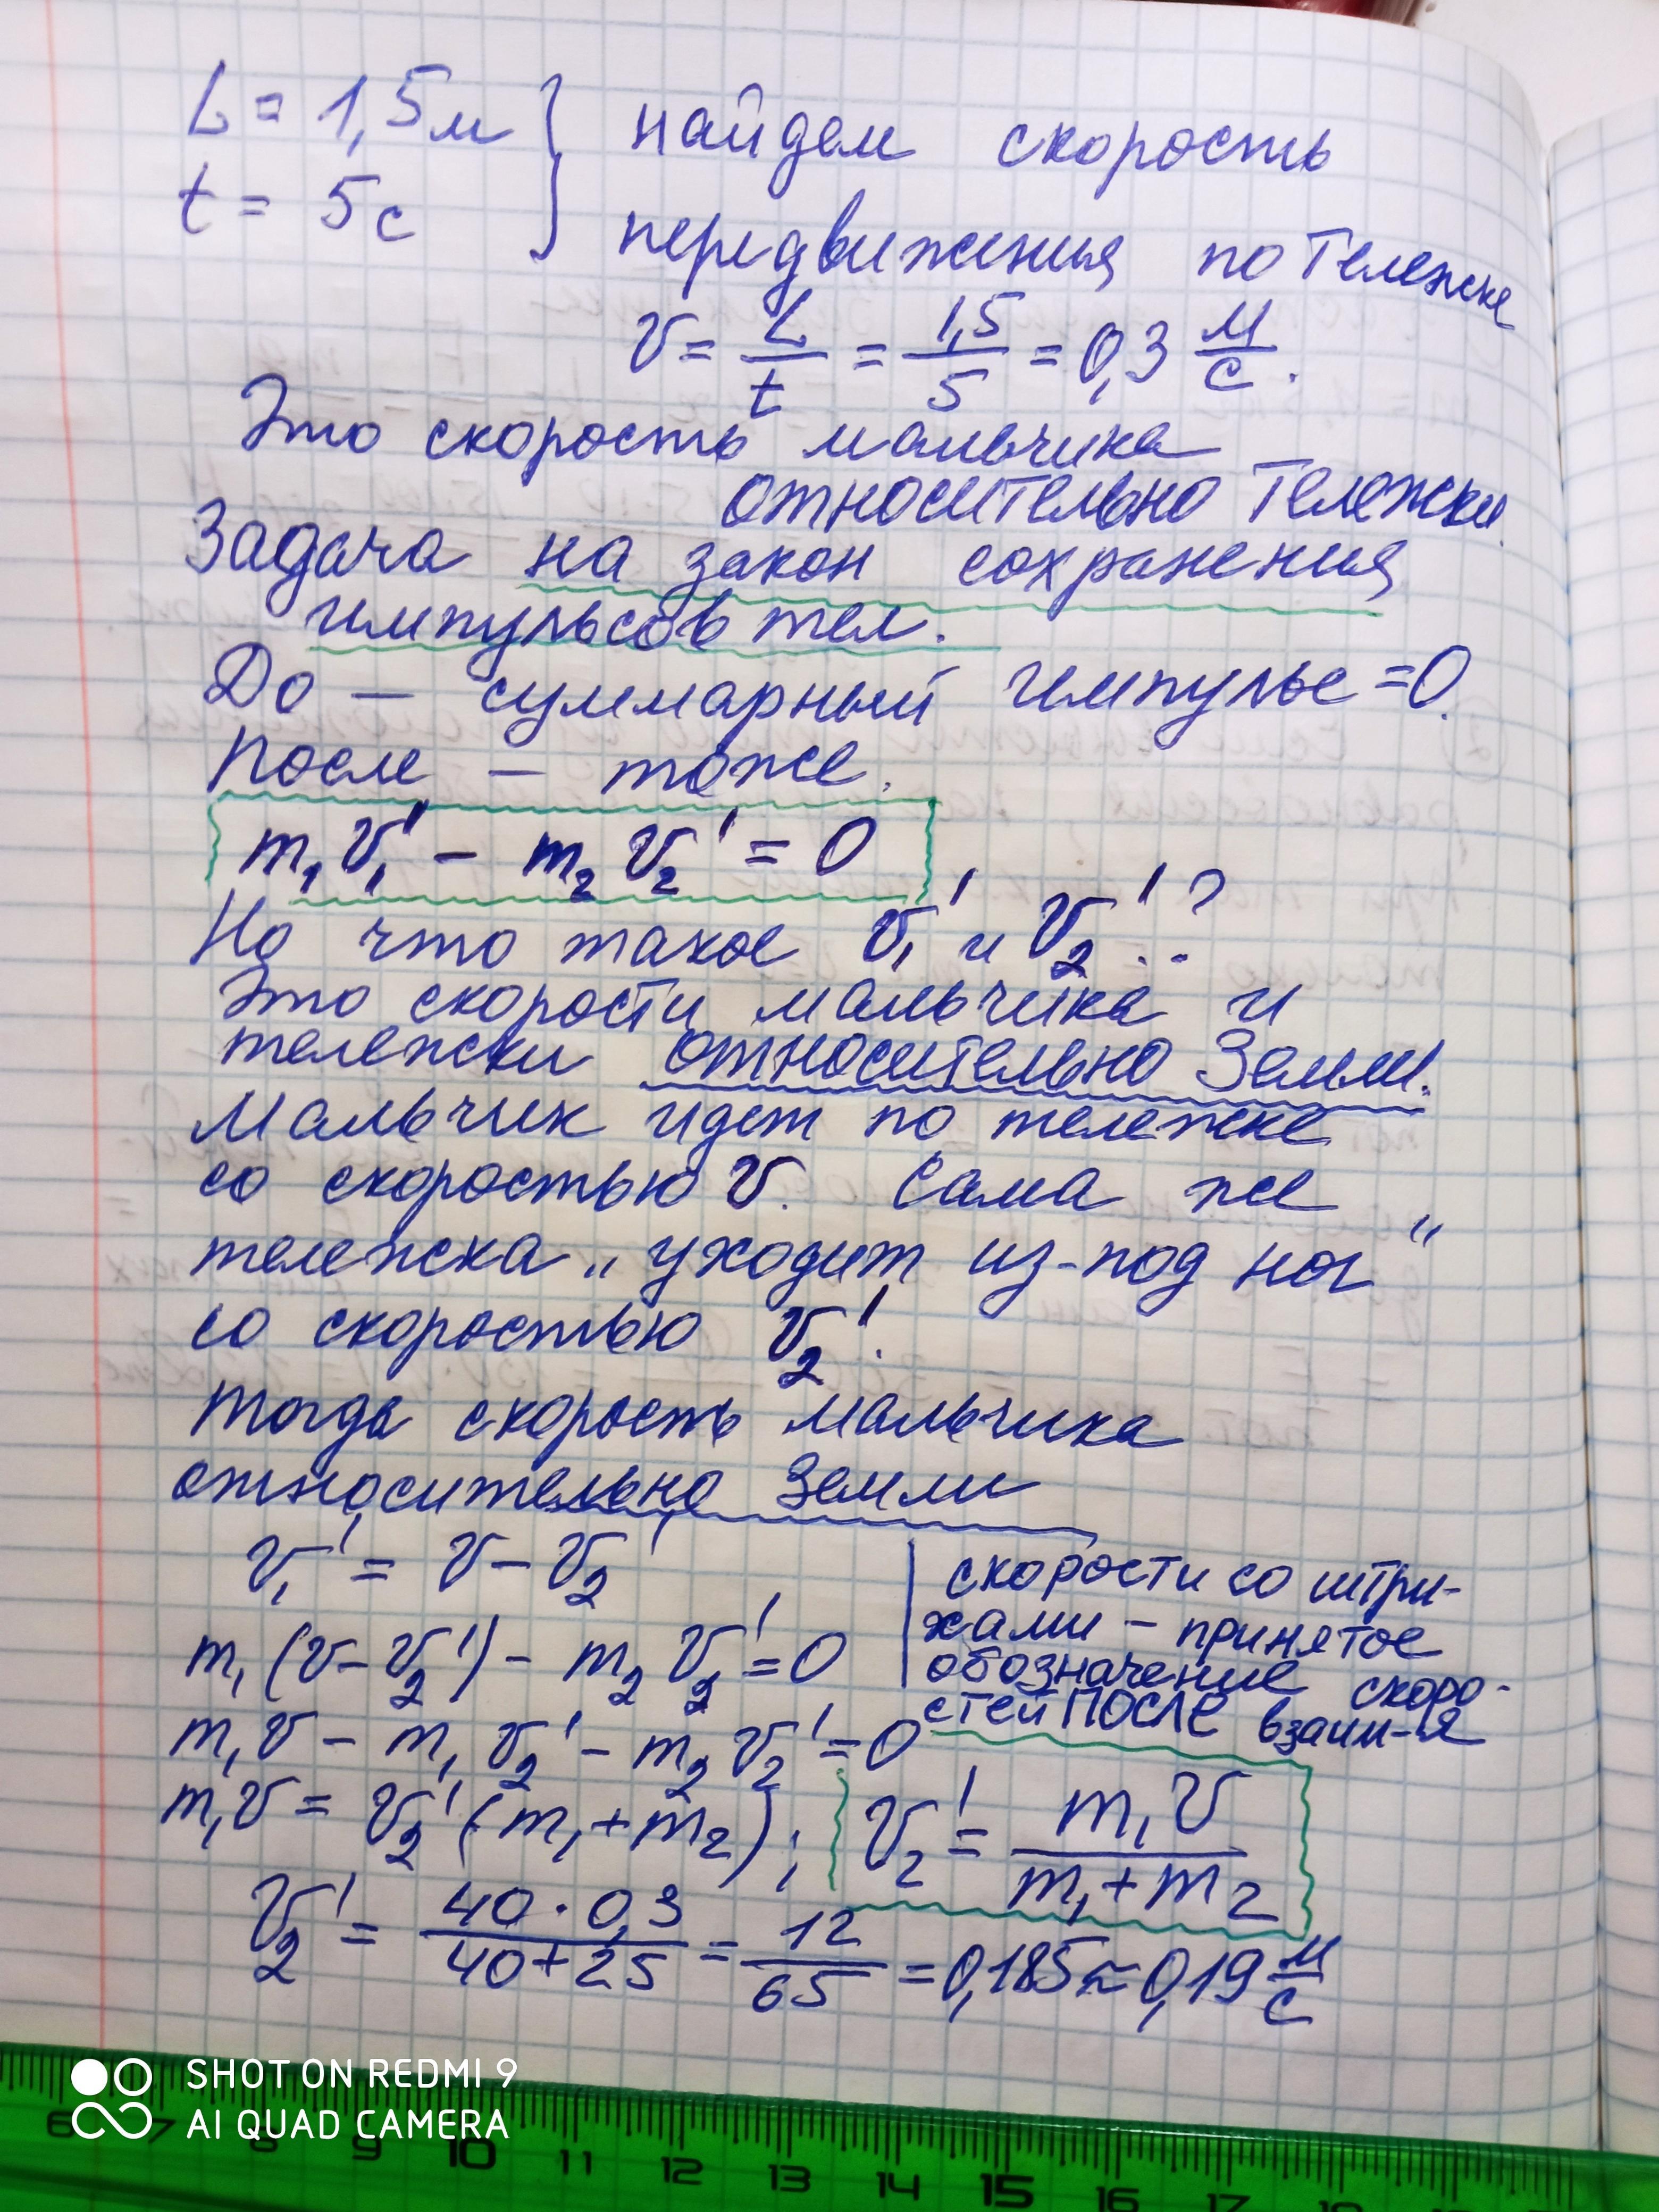 L = 1,5м
t = 5с
найдем скорость
передвижения по тележке
v = L/t = 1,5/5 = 0,3 м/с.
Это скорость мальчика
относительно тележки.
Задача на закон сохранения
импульсов тел.
До — суммарный импульс =0.
После — тоже.
m₁v₁' − m₂v₂' = 0
Но что такое v₁' и v₂'?
Это скорости мальчика и
тележки относительно Земли.
Мальчик идет по тележке
со скоростью v. Сама же
тележка „уходит из-под ног“
со скоростью v₂'.
Тогда скорость мальчика
относительно Земли
v₁' = v − v₂'
скорости со штри-
хами – принятое
обозначение скоро-
стей ПОСЛЕ взаим-я
m₁(v − v₂') − m₂v₂' = 0
m₁v − m₁v₂' − m₂v₂' = 0
m₁v = v₂'(m₁+m₂); v₂' = m₁v/(m₁+m₂)
v₂' = 40·0,3/(40+25) = 12/65 = 0,185 ≈ 0,19 м/с
SHOT ON REDMI 9
AI QUAD CAMERA
6 7 8 9 10 11 12 13 14 15 16 17 18